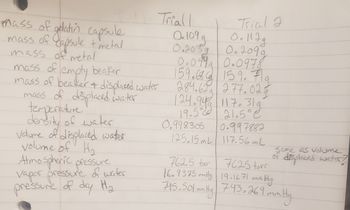 Trial 1 Trial 2
mass of gelatin capsule 0.109g 0.112g
mass of capsule + metal 0.209g
mass of metal 0.097g
mass of empty beaker 159.
mass of beaker + displaced water 284.62g 277.02g
mass of displaced water 117.31g
temperature 19.5°C 21.5°C
density of water 0.998305 0.997882
volume of displaced water 125.15 mL 117.56 mL
volume of H2 same as volume of displaced water?
Atmospheric pressure 762.5 torr 762.5 torr
vapor pressure of water mmHg 19.1671 mmHg
pressure of dry H2 745.501 mmHg 743.269 mmHg